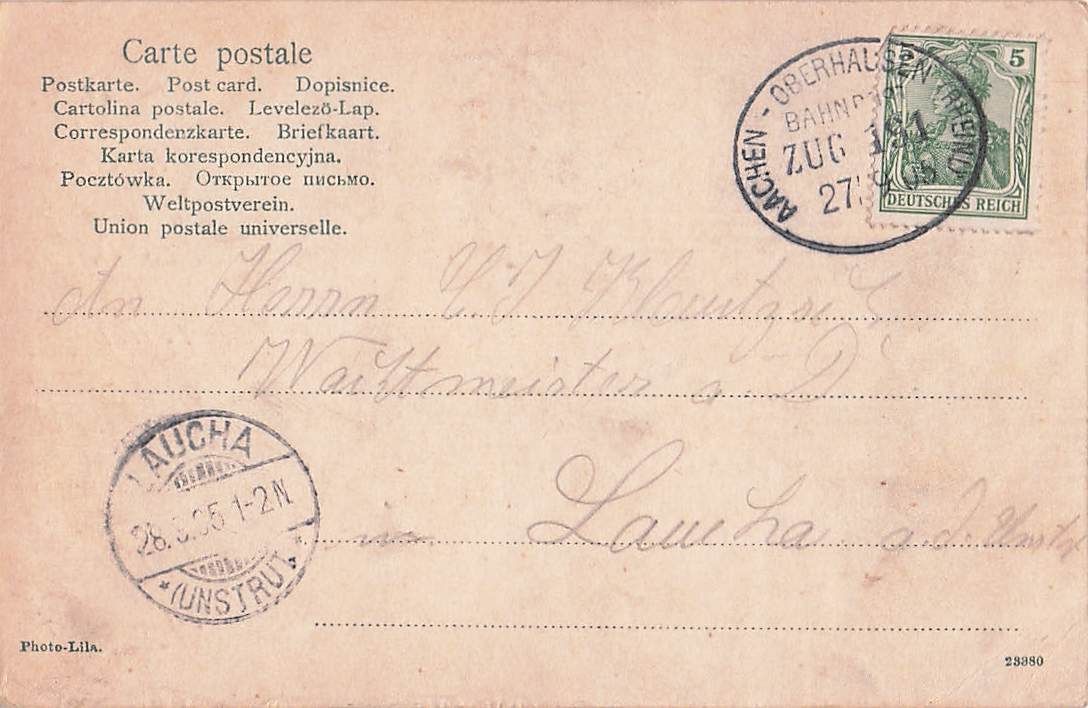 Carte postale
Postkarte. Post card. Dopisnice.
Cartolina postale. Levelező-Lap.
Correspondenzkarte. Briefkaart.
Karta korespondencyjna.
Pocztówka. Открытое письмо.
Weltpostverein.
Union postale universelle.
AACHEN - OBERHAUSEN (RHEINL)
ZUG 191
5
DEUTSCHES REICH
An Herrn
Wachtmeister a. D.
in Laucha a. d. Unstr
LAUCHA
1-2 N
*(UNSTRUT)*
Photo-Lila.
23380